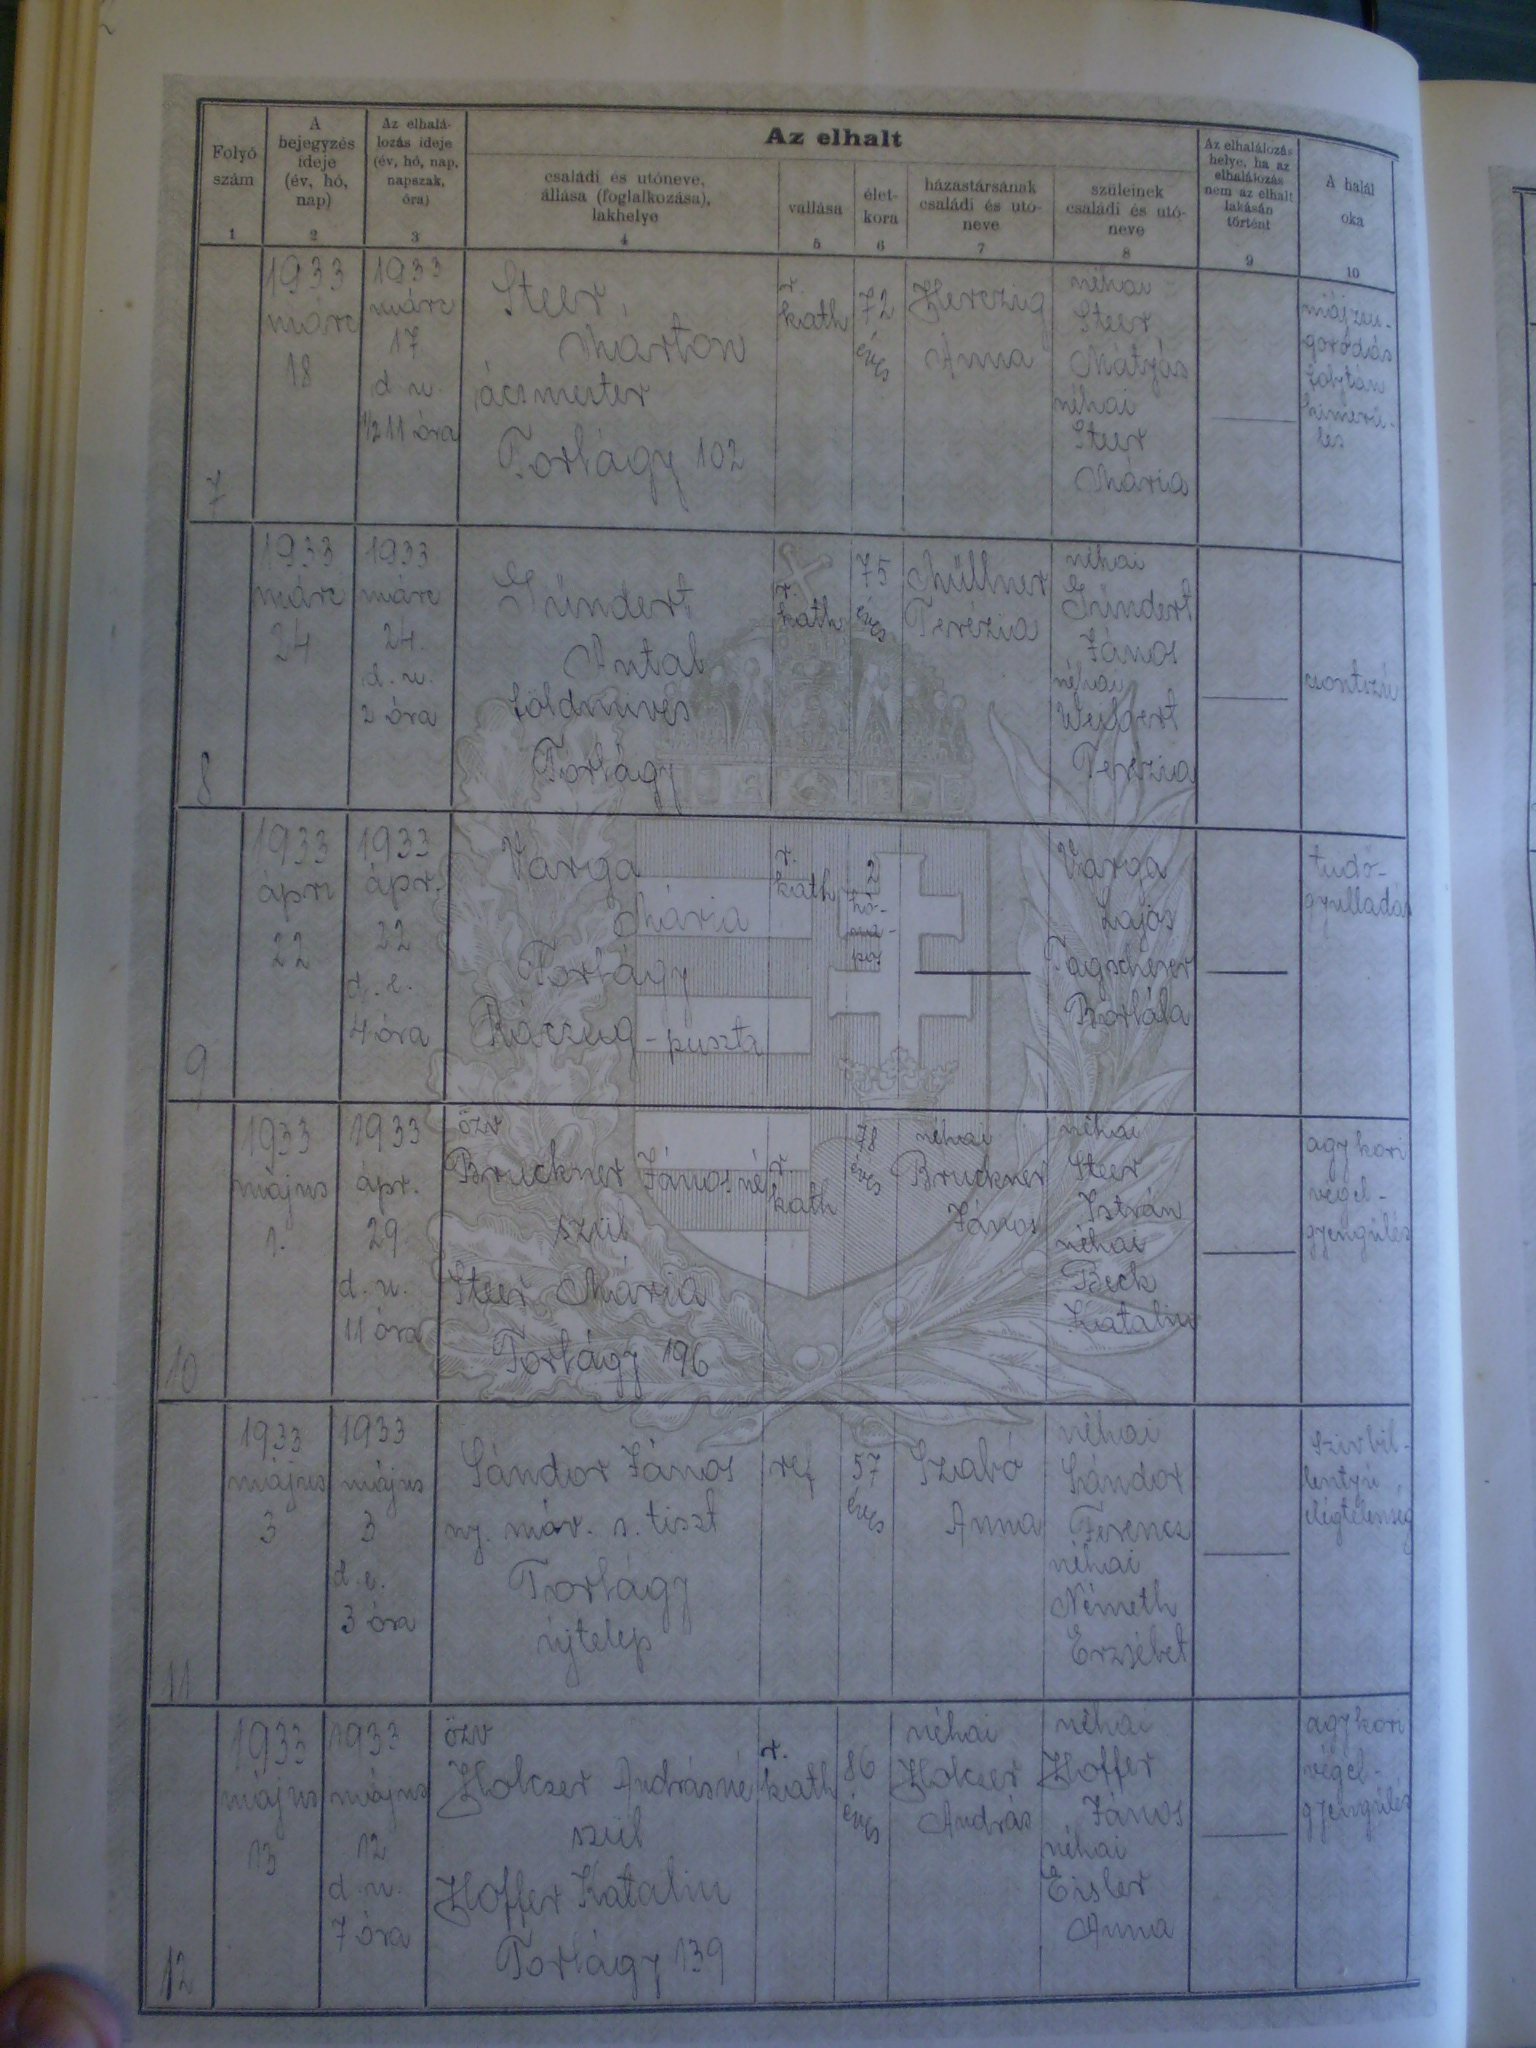 Folyó
szám
1
A
bejegyzés
ideje
(év, hó,
nap)
2
Az elhalá-
lozás ideje
(év, hó, nap,
napszak,
óra)
3
Az elhalt
családi és utóneve,
állása (foglalkozása),
lakhelye
4
vallása
5
élet-
kora
6
házastársának
családi és utó-
neve
7
szüleinek
családi és utó-
neve
8
Az elhalálozás
helye, ha az
elhalálozás
nem az elhalt
lakásán
történt
9
A halál
oka
10
7
1933
márc
18
1933
márc
17
d. u.
1/2 11 óra
Steer
Márton
ácsmester
Torbágy 102
r.
kath
72
éves
Herczig
Anna
néhai
Steer
Mátyás
néhai
Steer
Mária
májzsu-
gorodás
folytán
kimerü-
lés
8
1933
márc
24
1933
márc
24.
d. u.
2 óra
Gündert
Antal
földmüves
Torbágy
r.
kath
75
éves
Müllner
Terézia
néhai
Gündert
János
néhai
Terezia
csontszú
9
1933
ápri
22
1933
ápr.
22
d. e.
4 óra
Varga
Mária
Torbágy
Ráczug - puszta
r.
kath
2
hó-
na-
pos
Varga
Lajos
Tagscherer
Borbála
tüdő-
gyulladás
10
1933
május
1.
1933
ápr.
29
d. u.
11 óra
özv
Bruckner Jánosné
szül
Steer Mária
Torbágy 196
r.
kath
78
éves
néhai
Bruckner
János
néhai
Steer
István
néhai
Beck
Katalin
agykori
végel-
gyengülés
11
1933
május
3
1933
május
3
d. e.
3 óra
Sándor János
ny. máv. s. tiszt
Torbágy
újtelep
ref
57
éves
Szabó
Anna
néhai
Sándor
Ferencz
néhai
Németh
Erzsébet
szivbil-
lentyű
elégtelenség
12
1933
május
13
1933
május
12
d. u.
7 óra
özv
Holczer Andrásné
szül
Hoffer Katalin
Torbágy 139
r.
kath
86
éves
néhai
Holczer
András
néhai
Hoffer
János
néhai
Eisler
Anna
agykori
végel-
gyengülés